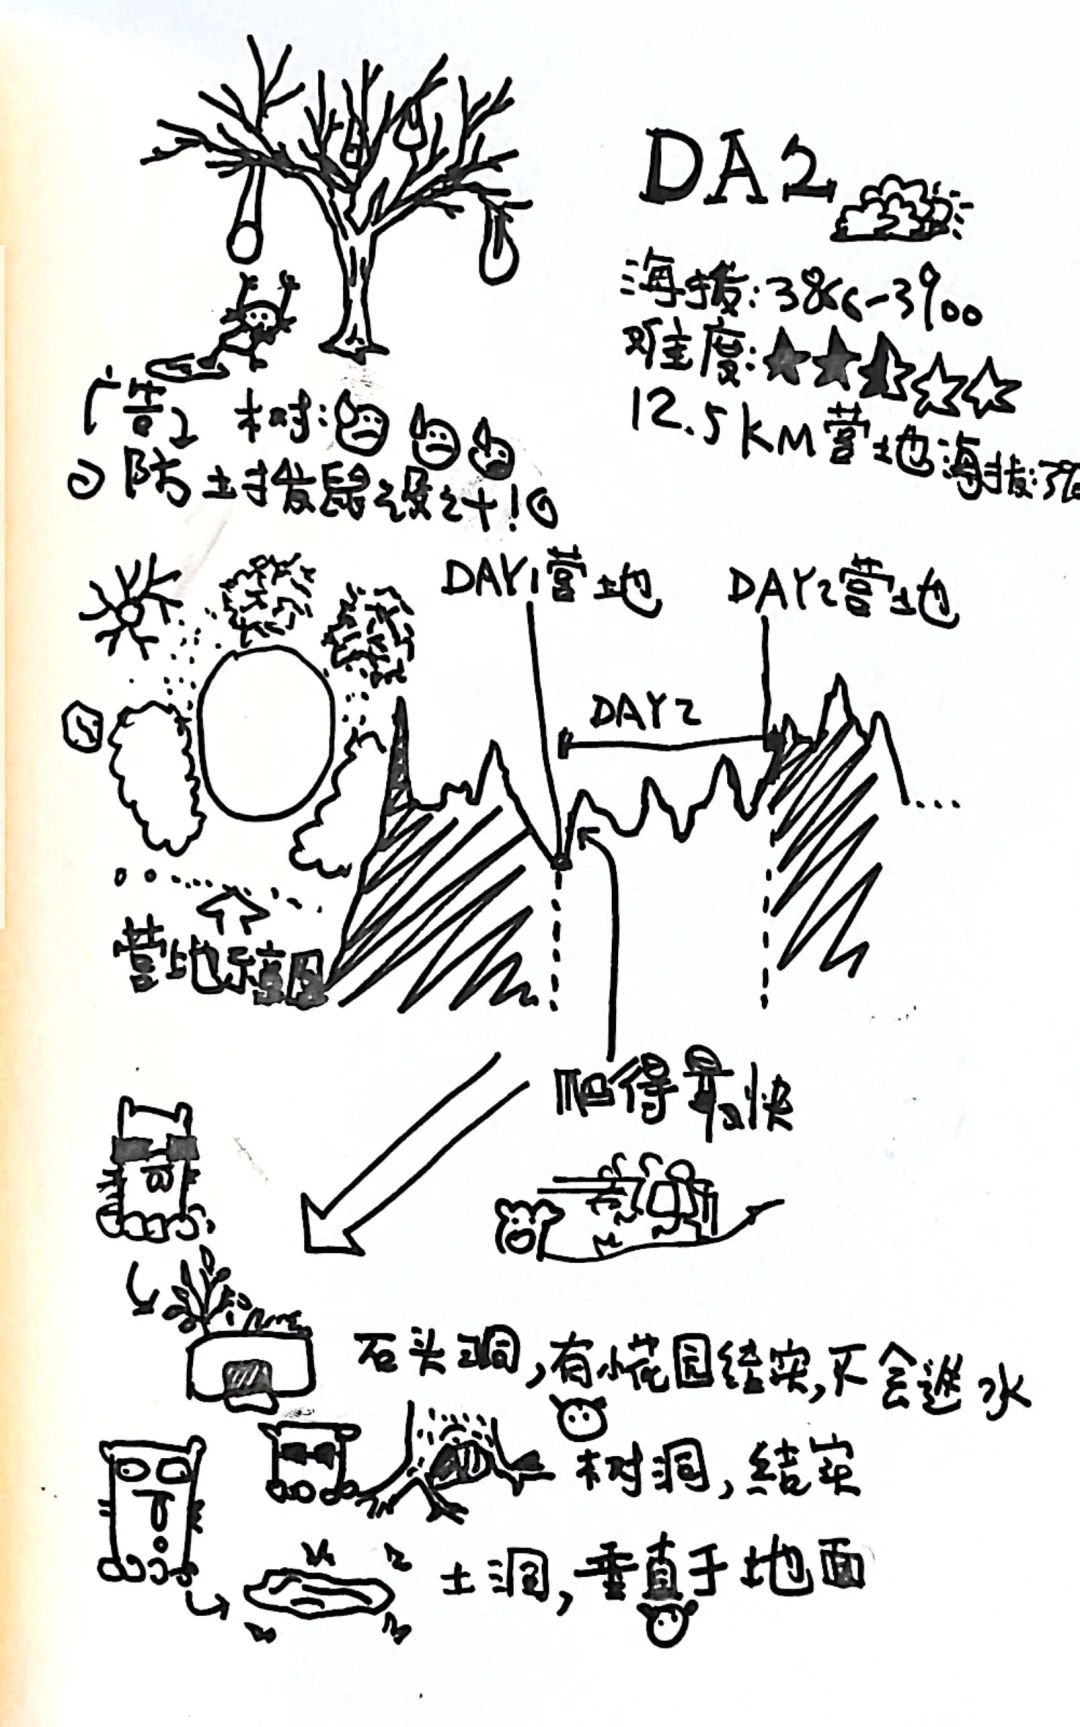 DA2
海拔:3866-3900
难度:
12.5KM营地海拔:39
广告2 树:
防土拨鼠之设计!
DAY1营地
DAY2营地
DAY2
营地示意图
爬得最快
石头洞,有小花园结实,不会进水
树洞,结实
土洞,垂直于地面